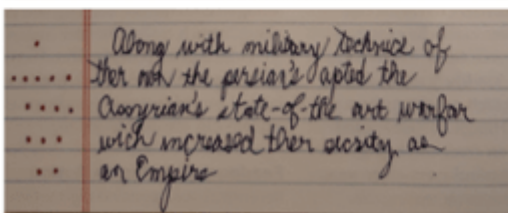 Along with military technics of
ther own the persian's apted the
Assyrian's state-of-the art warfar
wich increased ther as
an Empire